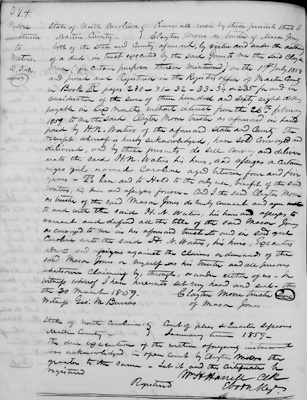 394
State of North Carolina } Know all men by these presents that I
Martin County } Clayton Moore as trustee of Mason Jones
both of the State and County aforesaid by virtue and under the authority
of a deed in trust executed by the said Jones to the said Clayton
Moore, for certain purposes therein mentioned, on the 14th July 1858
and proved and Registered in the Registry office of Martin County
in Book pages 230-31-32-33-34 & 235 for and in
consideration of the sum of three hundred and sixty eight dollars
payable in six months without interest from the
1859 to me the said Clayton Moore trustee as aforesaid in hand
paid by H. N. Waters of the aforesaid state and County the
receipt whereof is hereby acknowledged, have sold conveyed and
delivered, and by these presents do sell convey and deliver
unto the said H. N. Waters his heirs, and assigns a certain
negro girl named Caroline aged between four and five
years To Have and to Hold to the only use, benefit of the said
Waters, his heirs and assigns forever. And I the said Clayton Moore
as trustee of the said Mason Jones do hereby covenant and agree
to and with the said H. N. Waters, his heirs and assigns to
warrant and defend all the title of the said Mason Jones
as conveyed to me in his aforesaid trust to and in said girl
Caroline unto the said H. N. Waters, his heirs, executors
&c and assigns against the claims or demands of the
said Mason Jones or myself as his trustee and all persons
whatsoever claiming by, through, or under either of us. In
witness whereof I have hereunto set my hand and seal this
the March 1859. Clayton Moore trustee
Witness Geo. M. Burras of Mason Jones
State of North Carolina } Court of pleas & Quarter Sessions
Martin County } January term 1859.
the due execution of the within foregoing instrument
was acknowledged in open court by Clayton Moore the
grantor to the same. Let it and the certificate be
registered
Registered